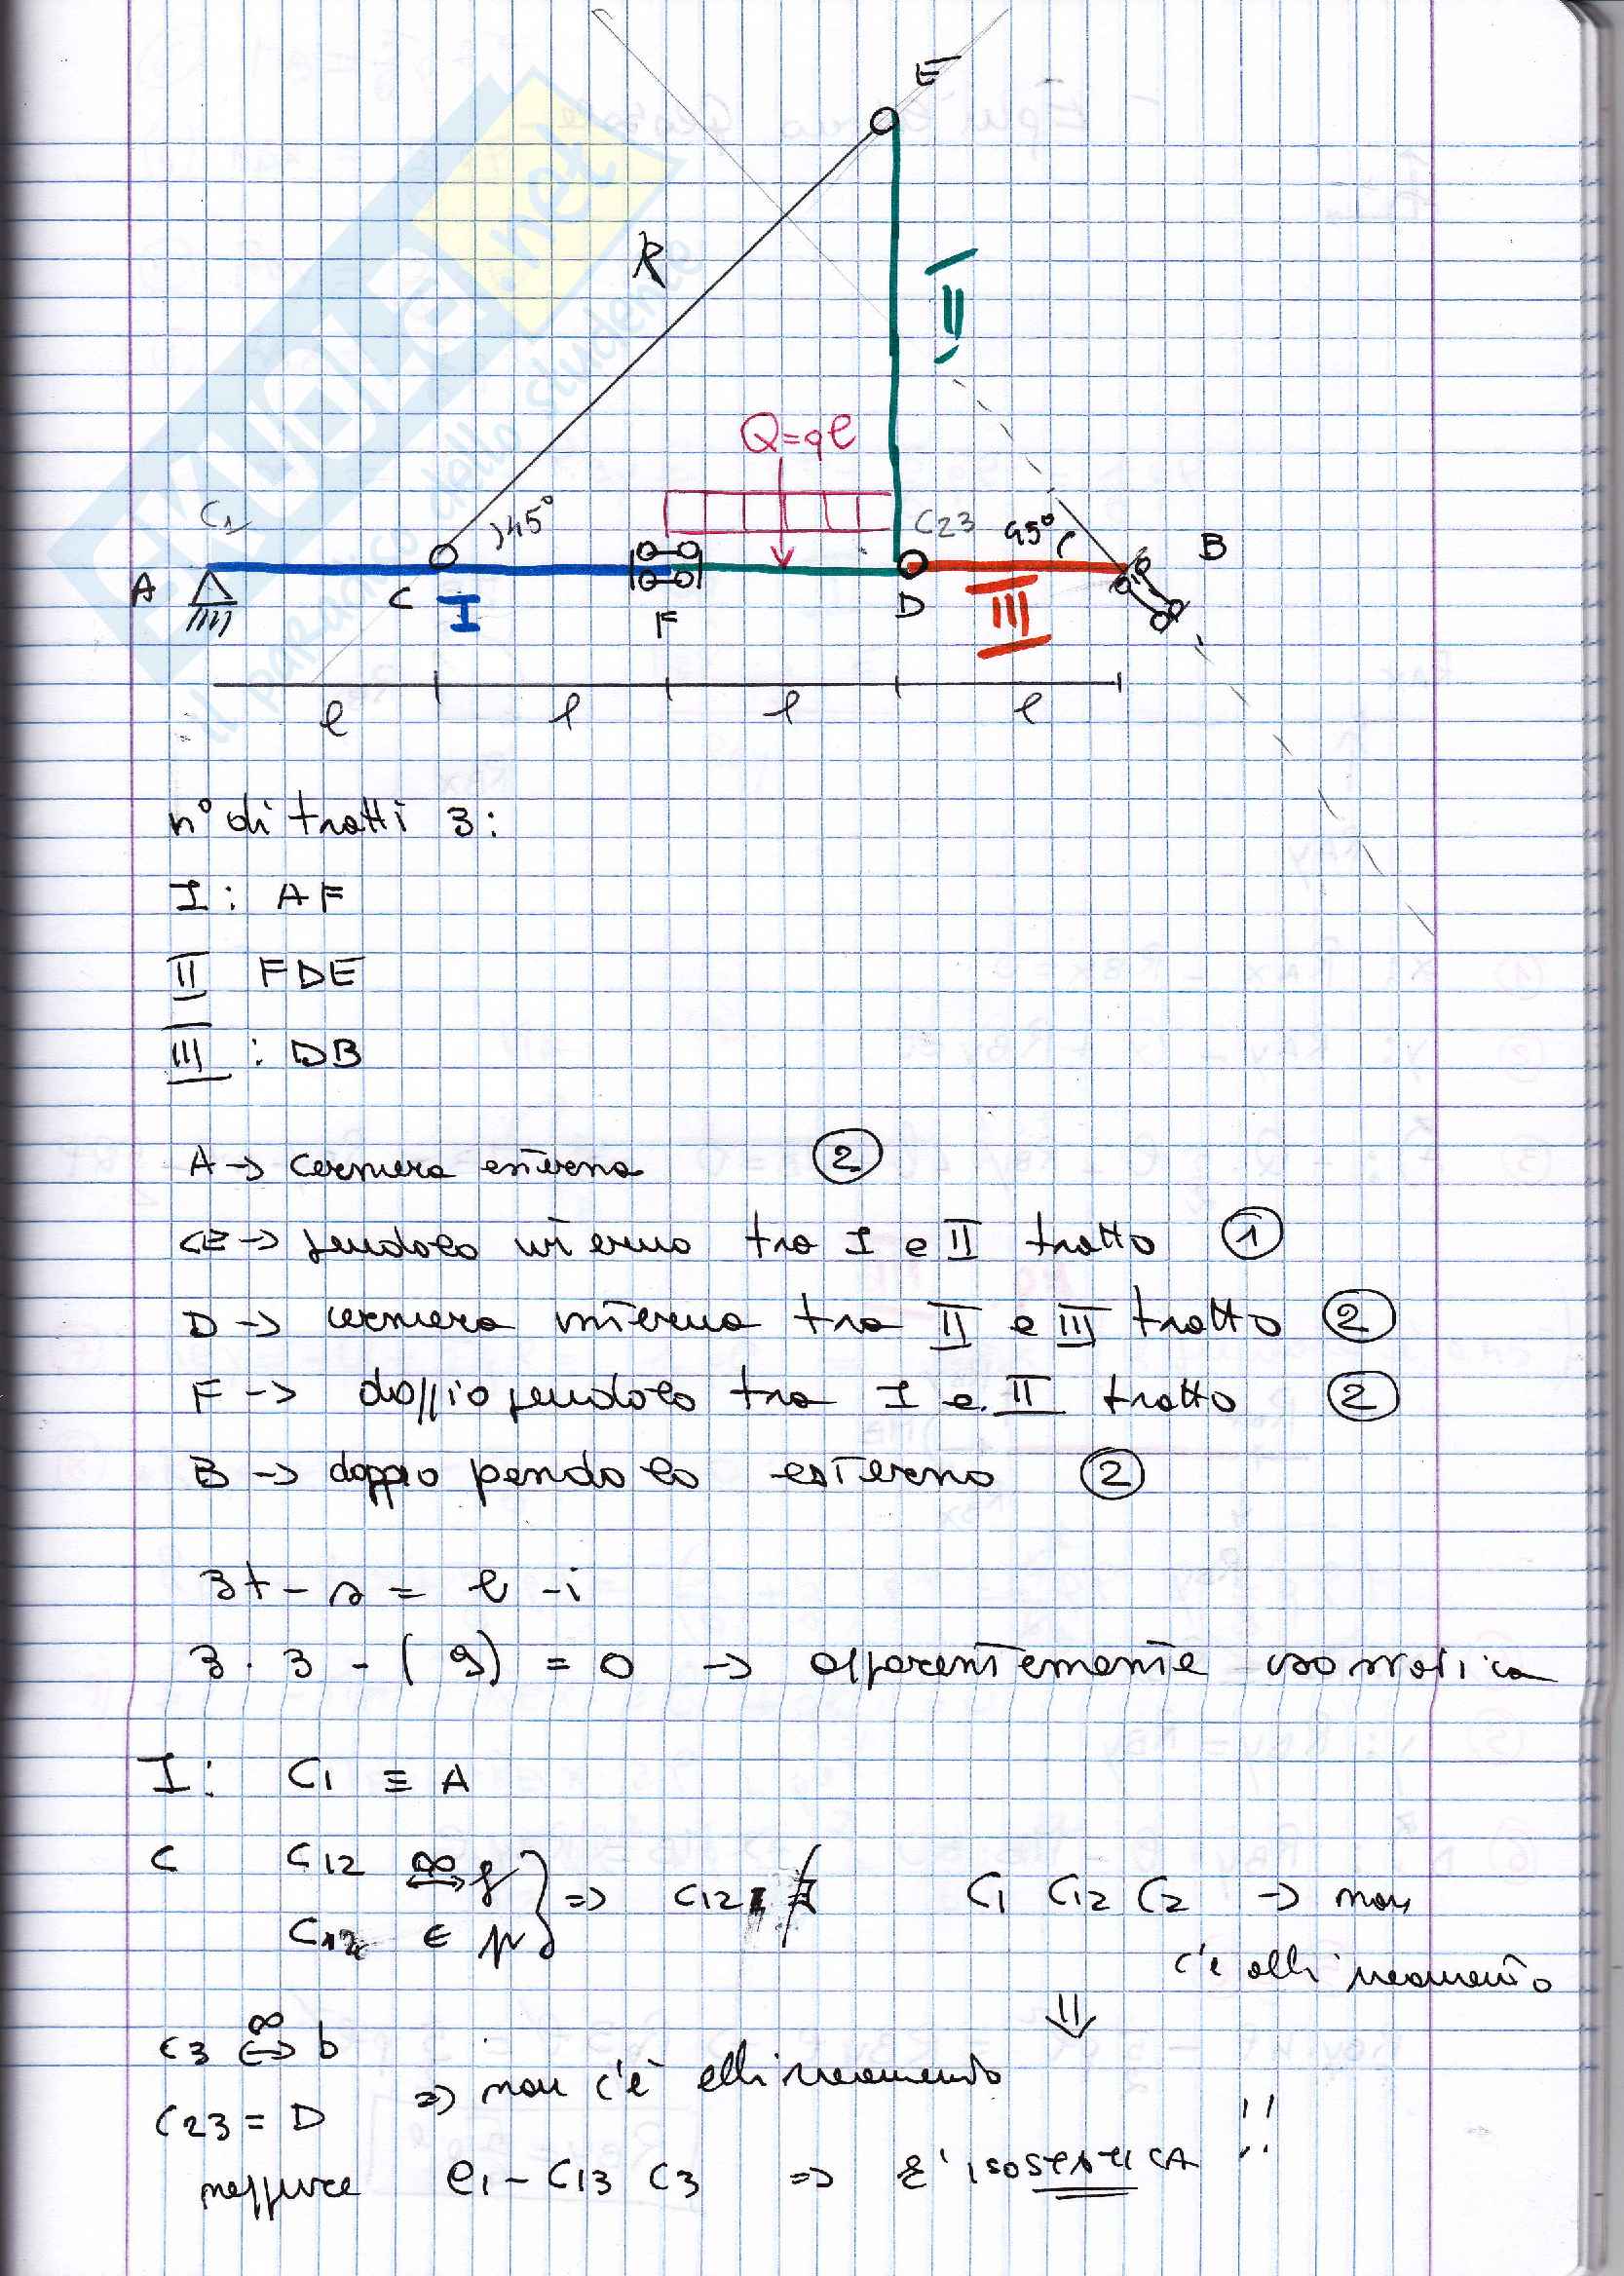 E
R
II
Q=qℓ
C1
)45°
C23
45°
B
A
C
I
F
D
III
ℓ ℓ ℓ ℓ
n° di tratti 3:
I: AF
II FDE
III: DB
A → cerniera esterna ②
CE → pendolo interno tra I e II tratto ①
D → cerniera interna tra II e III tratto ②
F → doppio pendolo tra I e II tratto ②
B → doppio pendolo esterno ②
3t - s = l - i
3 · 3 - (9) = 0 → apparentemente isostatica
I: C1 ≡ A
C C12 ∞ ↔ f
C12 ∈ r } ⇒ C12 ∄ C1 C12 C2 → non
c'è allineamento
⇓
C3 ∞ ↔ b
⇒ non c'è allineamento
C23 = D
neppure C1 - C13 C3 ⇒ E' ISOSTATICA !!
SKUOLA.net
il paradiso dello studente